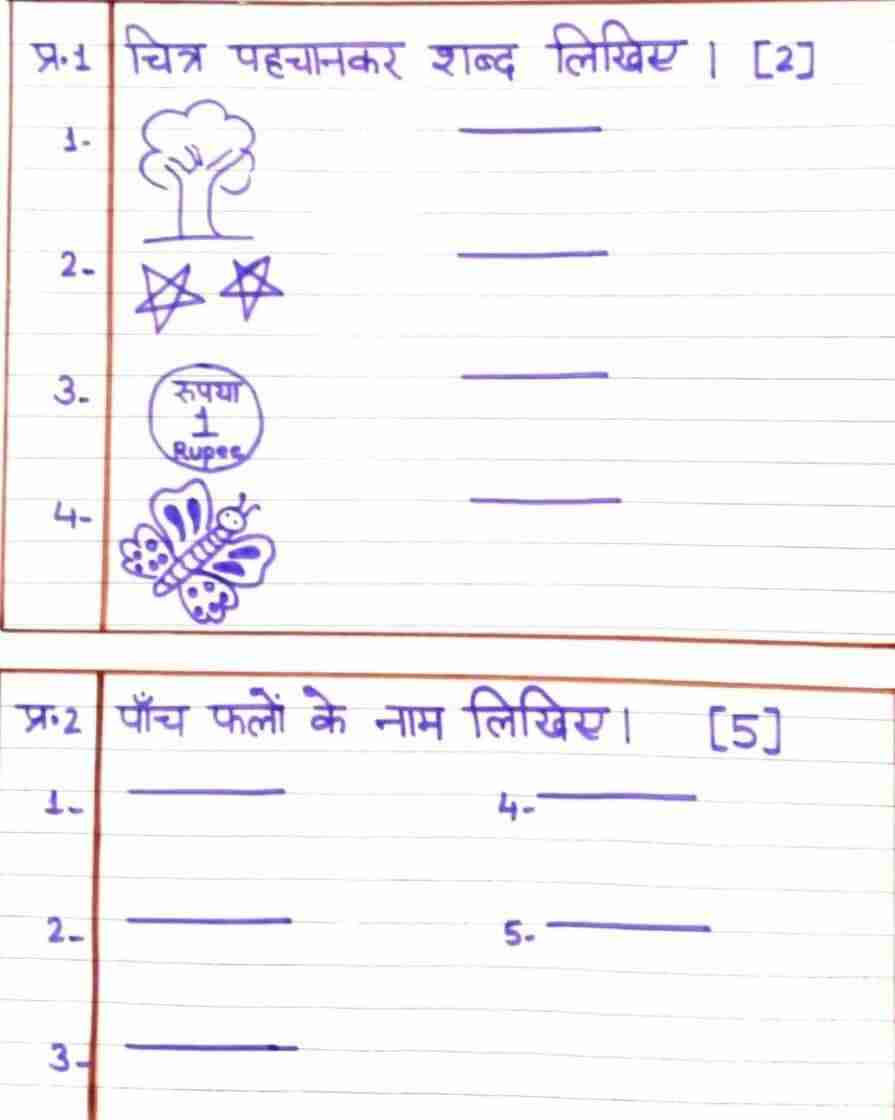 प्र.1 चित्र पहचानकर शब्द लिखिए । [2]
1-
2-
3-
रुपया
1
Rupee
4-
प्र.2 पाँच फलों के नाम लिखिए। [5]
1- 4-
2- 5-
3-